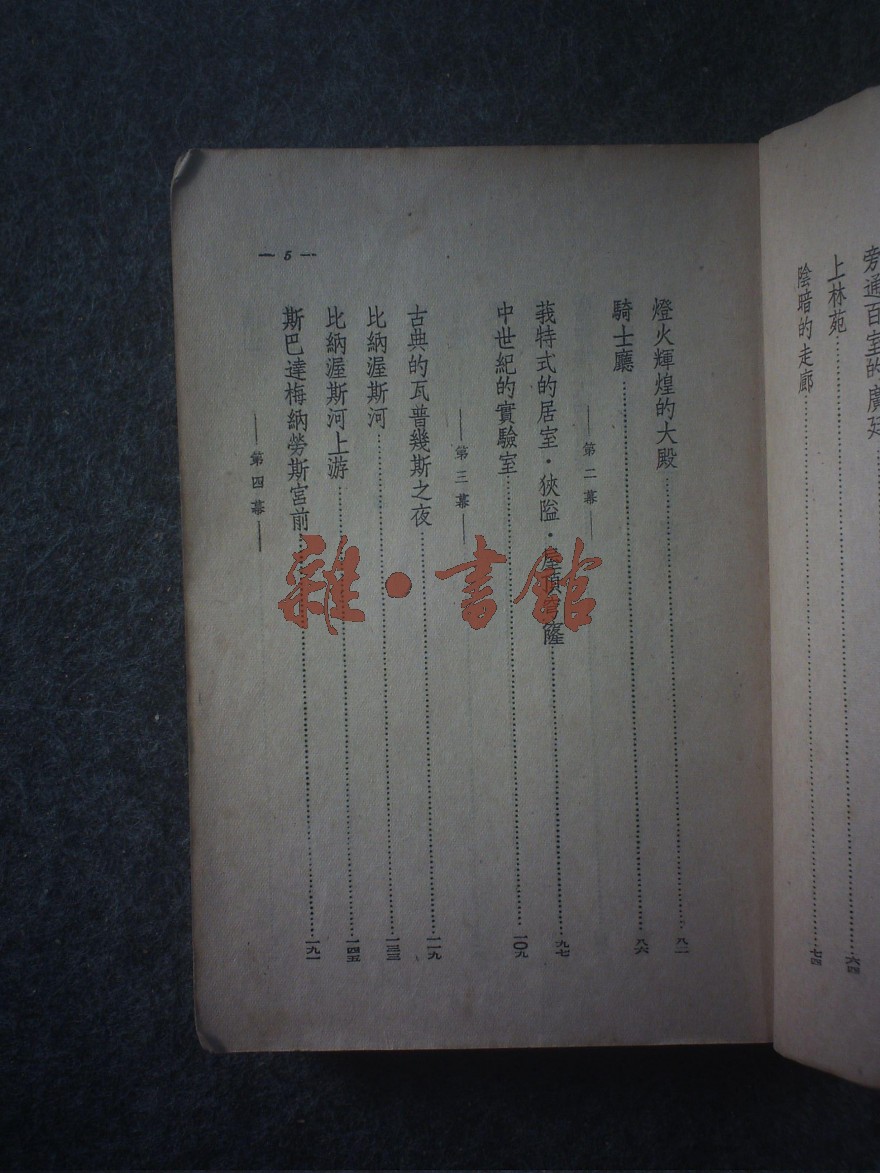 旁通百室的廣廷
上林苑……六四
陰暗的走廊……七四
燈火輝煌的大殿……八二
騎士廳……八六
——第二幕——
莪特式的居室·狹隘·屋頂穹窿……九七
中世紀的實驗室……一〇九
——第三幕——
古典的瓦普幾斯之夜……一一九
比納渥斯河……一三三
比納渥斯河上游……一四五
斯巴達梅納勞斯宮前……一九一
——第四幕——
— 5 —
雜·書館